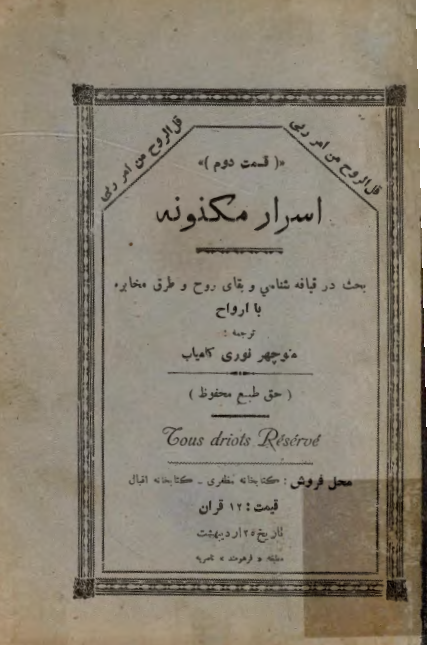 قل الروح من امر ربی
قل الروح من امر ربی
«( قسمت دوم )»
اسرار مکنونه
بحث در قیافه شناسی و بقای روح و طرق مخابره
با ارواح
ترجمه :
منوچهر نوری کامیاب
( حق طبع محفوظ )
Tous driots Résérvé
محل فروش : کتابخانه مظفری - کتابخانه اقبال
قیمت : ۱۲ قران
تاریخ ۲۵ اردیبهشت
مطبعه « فرهومند » ناصریه